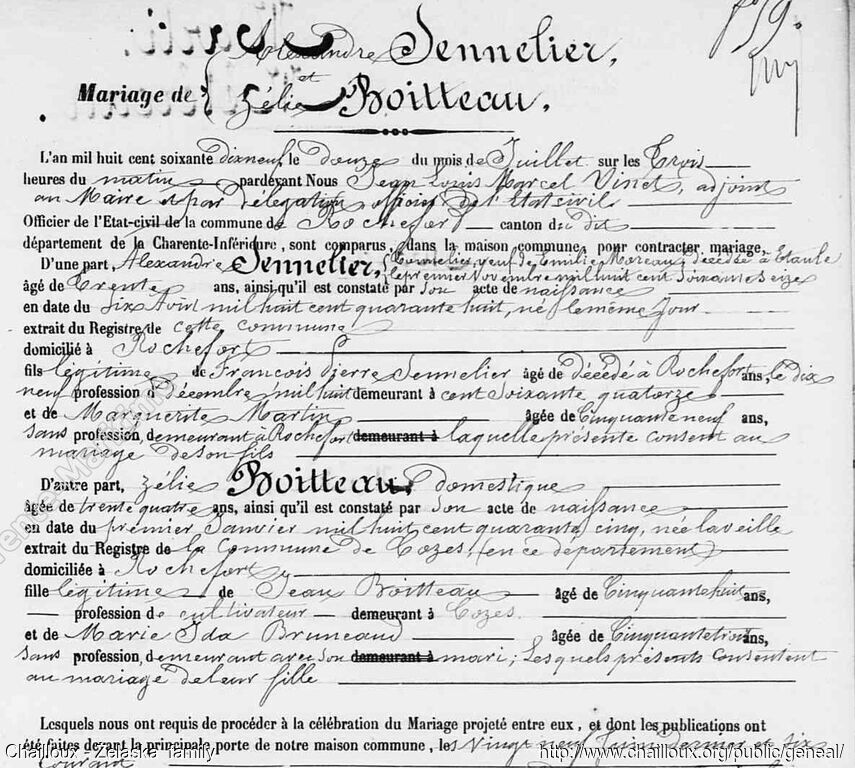 Alexandre Jennelier,
et
Mariage de
Zélie Boitteau.
f 59.
L'an mil huit cent soixante dix neuf le douze du mois de Juillet sur les trois
heures du matin pardevant Nous Jean Louis Marcel Vinet, adjoint
au Maire et par délégation officier de l'Etat civil
Officier de l'Etat-civil de la commune de Rochefort canton du dit
département de la Charente-Inférieure, sont comparus, dans la maison commune, pour contracter mariage,
D'une part, Alexandre Jennelier, tonnelier, veuf de Emilie Moreau, décédée à Etaule
le premier Novembre mil huit cent soixante seize
âgé de trente ans, ainsi qu'il est constaté par son acte de naissance
en date du six Avril mil huit cent quarante huit, né le même jour
extrait du Registre de cette commune
domicilié à Rochefort
fils légitime de François Pierre Jennelier âgé de décédé à Rochefort ans, le dix
neuf profession d décembre mil huit demeurant à cent soixante quatorze
et de Marguerite Martin âgée de Cinquante neuf ans,
sans profession, demeurant à Rochefort demeurant à laquelle présente consent au
mariage de son fils
D'autre part, Zélie Boitteau, domestique
âgée de trente quatre ans, ainsi qu'il est constaté par son acte de naissance
en date du premier Janvier mil huit cent quarante cinq, née la veille
extrait du Registre de la Commune de Cozes, (en ce département)
domiciliée à Rochefort
fille légitime de Jean Boitteau âgé de Cinquante huit ans,
profession de cultivateur demeurant à Cozes.
et de Marie Ida Bruneaud âgée de Cinquante trois ans,
sans profession, demeurant avec son demeurant à mari; Lesquels présents consentent
au mariage de leur fille
Lesquels nous ont requis de procéder à la célébration du Mariage projeté entre eux, et dont les publications ont
été faites devant la principale porte de notre maison commune, les vingt neuf Juin dernier et six
courant
Chailloux - Zelaska family
http://www.chailloux.org/public/geneal/